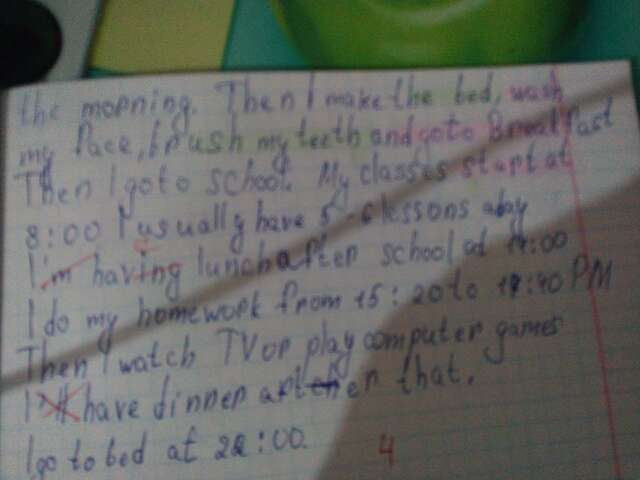 the morning. Then I make the bed, wash
my face, brush my teeth and go to Breakfast
Then I go to school. My classes start at
8:00 I usually have 5-6 lessons a day
I'm having lunch after school at 14:00
I do my homework from 15:20 to 17:40 PM
Then I watch TV or play computer games
I'll have dinner after that.
I go to bed at 22:00.
4